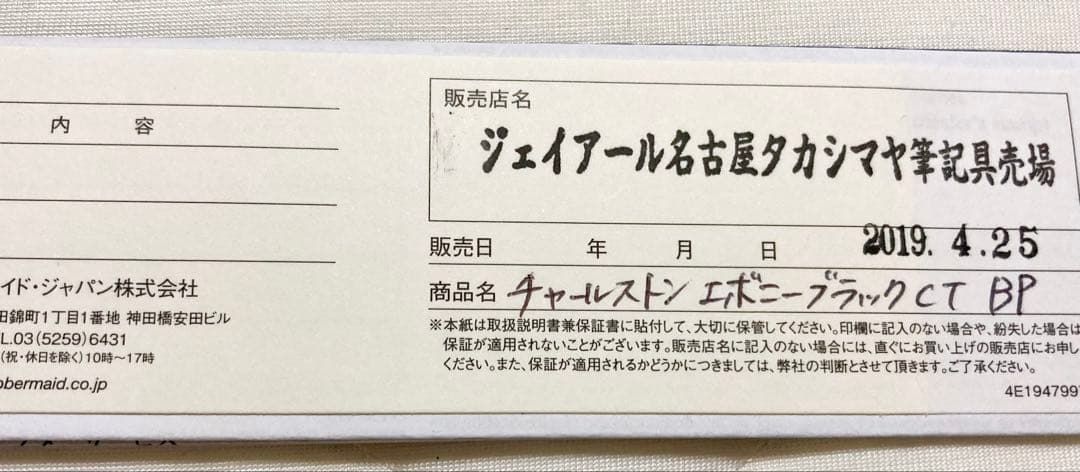 内 容
イド・ジャパン株式会社
田錦町1丁目1番地 神田橋安田ビル
L.03(5259)6431
(祝・休日を除く)10時〜17時
bbermaid.co.jp
販売店名
ジェイアール名古屋タカシマヤ筆記具売場
販売日 年 月 日 2019. 4.25
商品名 チャールストン エボニーブラックCT BP
※本紙は取扱説明書兼保証書に貼付して、大切に保管してください。印欄に記入のない場合や、紛失した場合は
保証が適用されないことがございます。販売店名に記入のない場合には、直ぐにお買い上げの販売店にお申し
ください。また、保証が適用されるかどうかにつきましては、弊社の判断とさせて頂きます。ご了承ください。
4E1947997